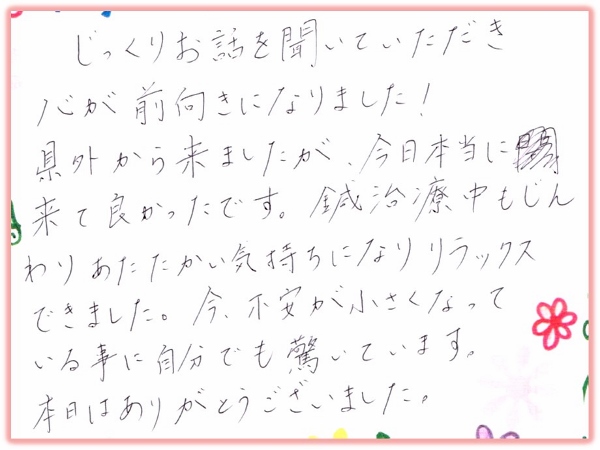 じっくりお話を聞いていただき
心が前向きになりました！
県外から来ましたが、今日本当に
来て良かったです。鍼治療中もじん
わりあたたかい気持ちになりリラックス
できました。今、不安が小さくなって
いる事に自分でも驚いています。
本日はありがとうございました。